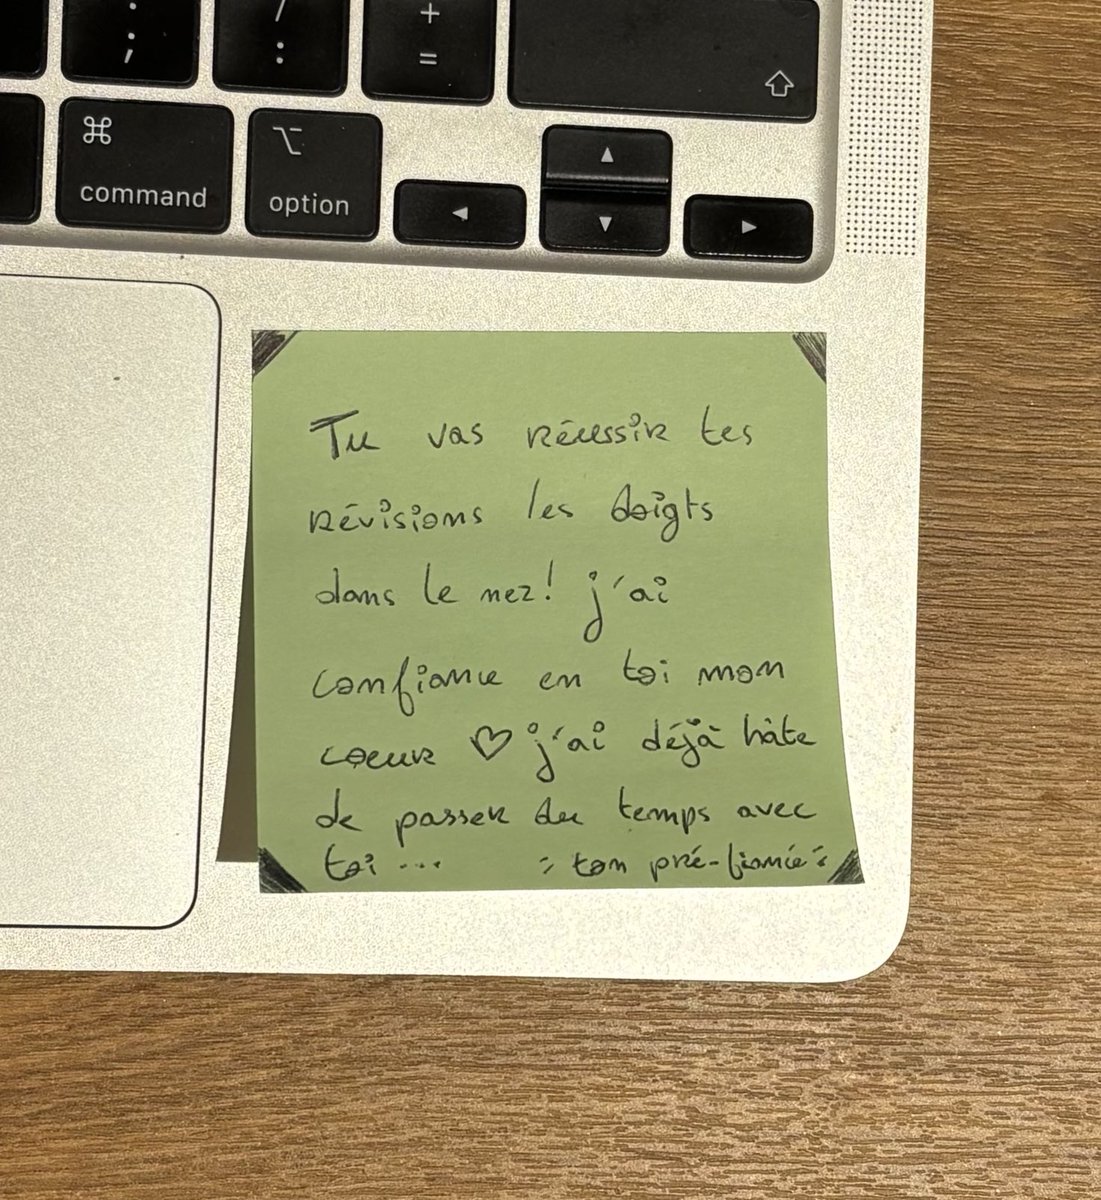 ; :
/ :
+ =
⇧
⌘ command
⌥ option
◄
▲
▼
►
Tu vas réussir tes
révisions les doigts
dans le nez! j'ai
confiance en toi mon
coeur ♡ j'ai déjà hâte
de passer du temps avec
toi ... ton pré-fiancé